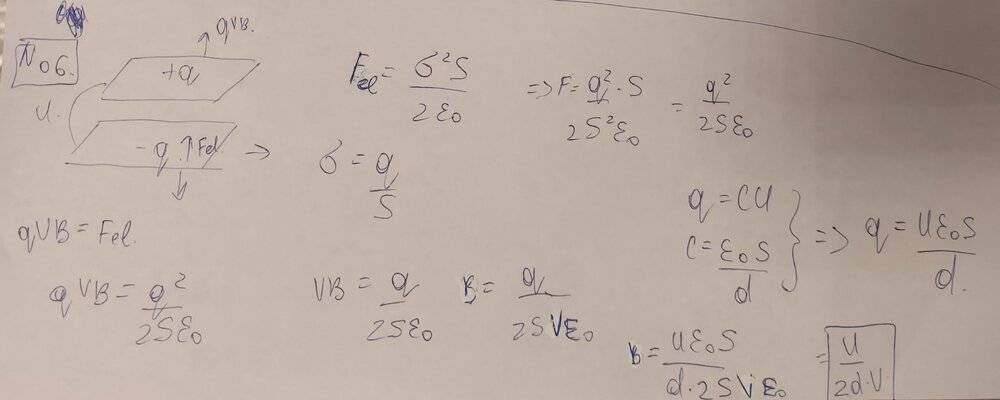 N06.
qVB.
+q
U.
-q ↑Fel
Fel = σ²S / 2ε₀ => F = q²·S / 2S²ε₀ = q² / 2Sε₀
σ = q / S
qVB = Fel.
qVB = q² / 2Sε₀
VB = q / 2Sε₀ B = q / 2SVε₀
q = CU
C = ε₀S / d } => q = Uε₀S / d.
B = Uε₀S / d·2SVε₀ = U / 2d·V